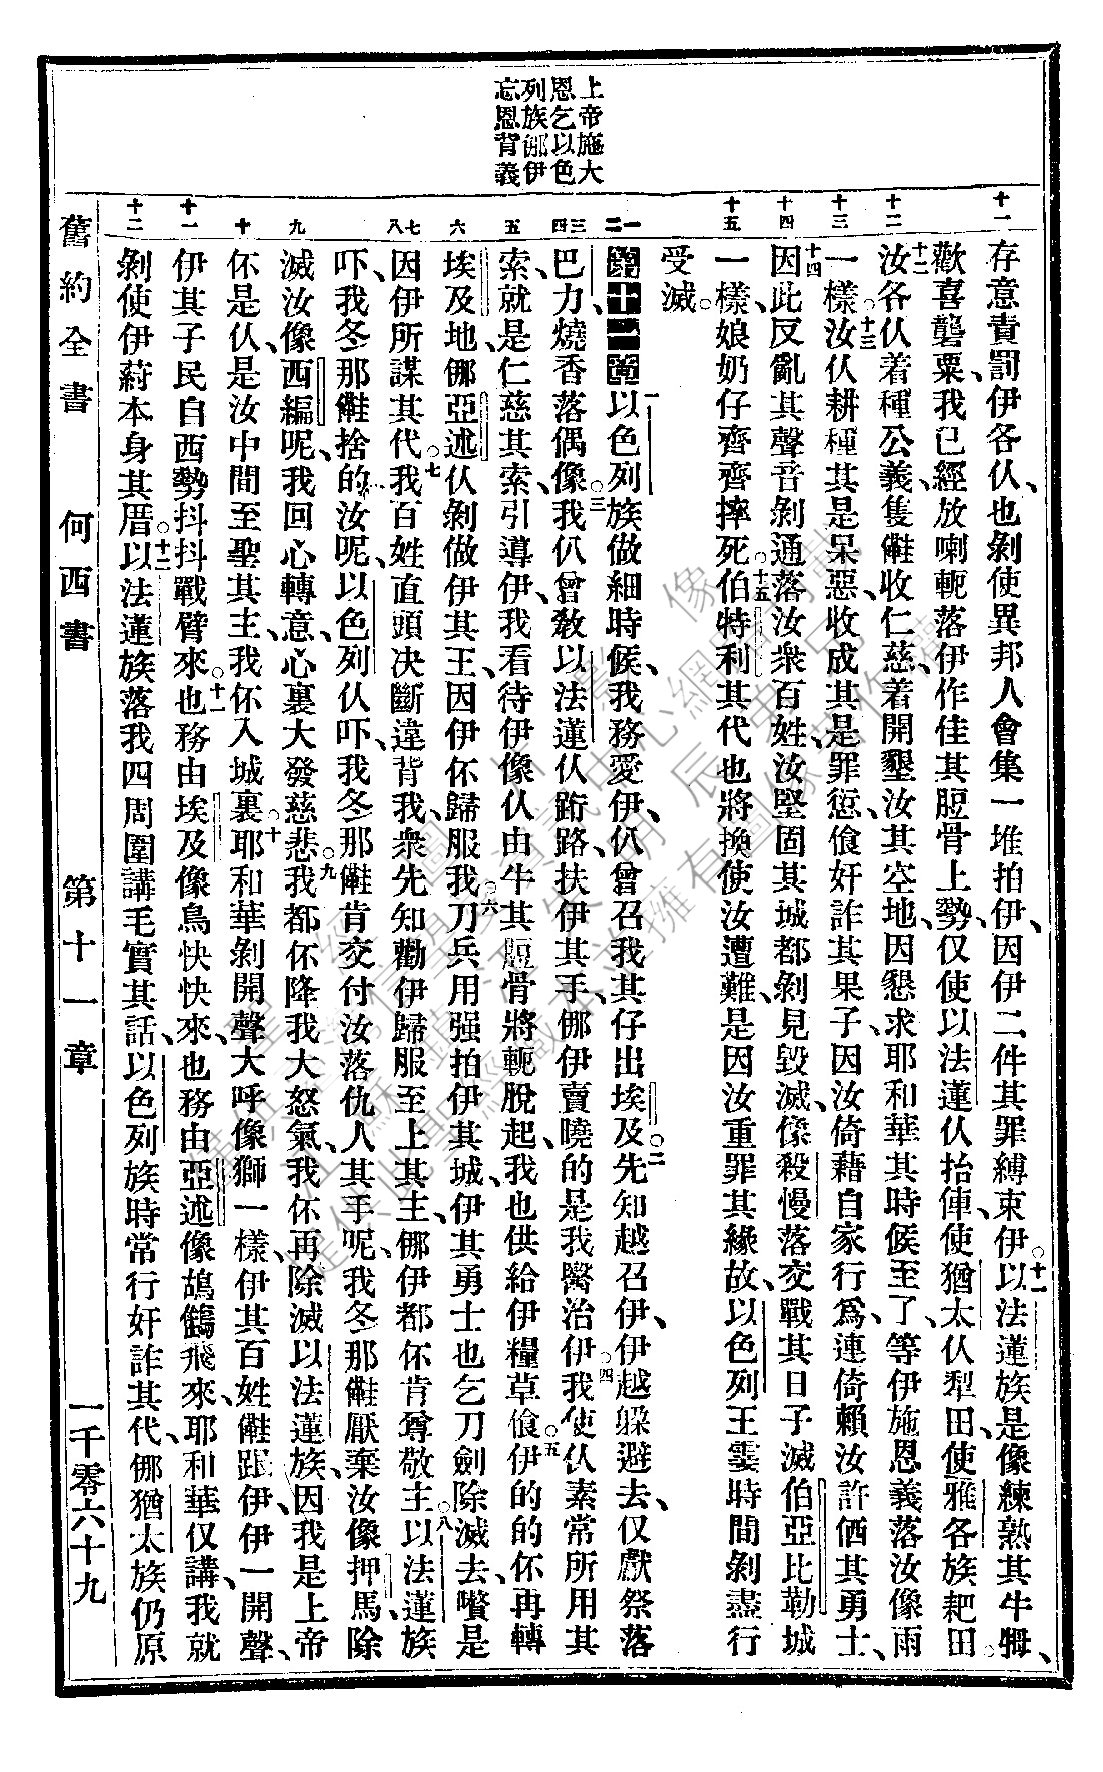 上帝施大
恩乞以色
列族㑚伊
忘恩背義
十一
十二
十三
十四
十五
一二
三四
五
六
七八
九
十
十一
十二
存意責罰伊各仈、也剝使異邦人會集一堆拍伊、因伊二件其罪縛束伊。十一以法蓮族是像練熟其牛㹇、
歡喜礱粟、我已經放喇軛落伊作佳其脰骨上、勢仅使以法蓮仈抬俥、使猶太仈犁田、使雅各族耙田。
十二汝各仈着種公義、隻𣍐收仁慈、着開墾汝其空地、因懇求耶和華其時候至了、等伊施恩義落汝像雨
一樣。十三汝仈耕種其是呆惡、收成其是罪愆、飡奸詐其果子、因汝倚藉自家行爲、連倚賴汝許価其勇士、
十四因此反亂其聲音剝通落汝衆百姓、汝堅固其城都剝見毀滅、像殺慢落交戰其日子滅伯亞比勒城
一樣、娘奶仔齊齊摔死。十五伯特利其代也將換使汝遭難、是因汝重罪其緣故、以色列王霎時間剝盡行
受滅。
一以色列族做細時候、我務愛伊、仈曾召我其仔出埃及。二先知越召伊、伊越躲避去、仅獻祭落
巴力、燒香落偶像。三我仈曾教以法蓮仈跡路、扶伊其手、㑚伊賣曉的是我醫治伊。四我使仈素常所用其
索、就是仁慈其索、引導伊、我看待伊像仈由牛其脰骨將軛脫起、我也供給伊糧草飡。五伊的的伓再轉
埃及地、㑚亞述仈剝做伊其王、因伊伓歸服我。六刀兵用强拍伊其城、伊其勇士也乞刀劍除滅去、嚽是
因伊所謀其代。七我百姓直頭决斷違背我、衆先知勸伊歸服至上其主、㑚伊都伓肯尊敬主。八以法蓮族
吓、我冬那𣍐捨的汝呢、以色列仈吓、我冬那𣍐肯交付汝落仇人其手呢、我冬那𣍐厭棄汝像押馬、除
滅汝像西編呢、我回心轉意、心裏大發慈悲。九我都伓降我大怒氣、我伓再除滅以法蓮族、因我是上帝
伓是仈、是汝中間至聖其主、我伓入城裏。十耶和華剝開聲大呼像獅一樣、伊其百姓𣍐跟伊、伊一開聲、
伊其子民自西勢抖抖戰臂來。十一也務由埃及像鳥快快來、也務由亞述像鴣鶴飛來、耶和華仅講、我就
剝使伊葤本身其厝。十二以法蓮族落我四周圍講毛實其話、以色列族時常行奸詐其代、㑚猶太族仍原
舊約全書　何西書　第十一章　一千零六十九